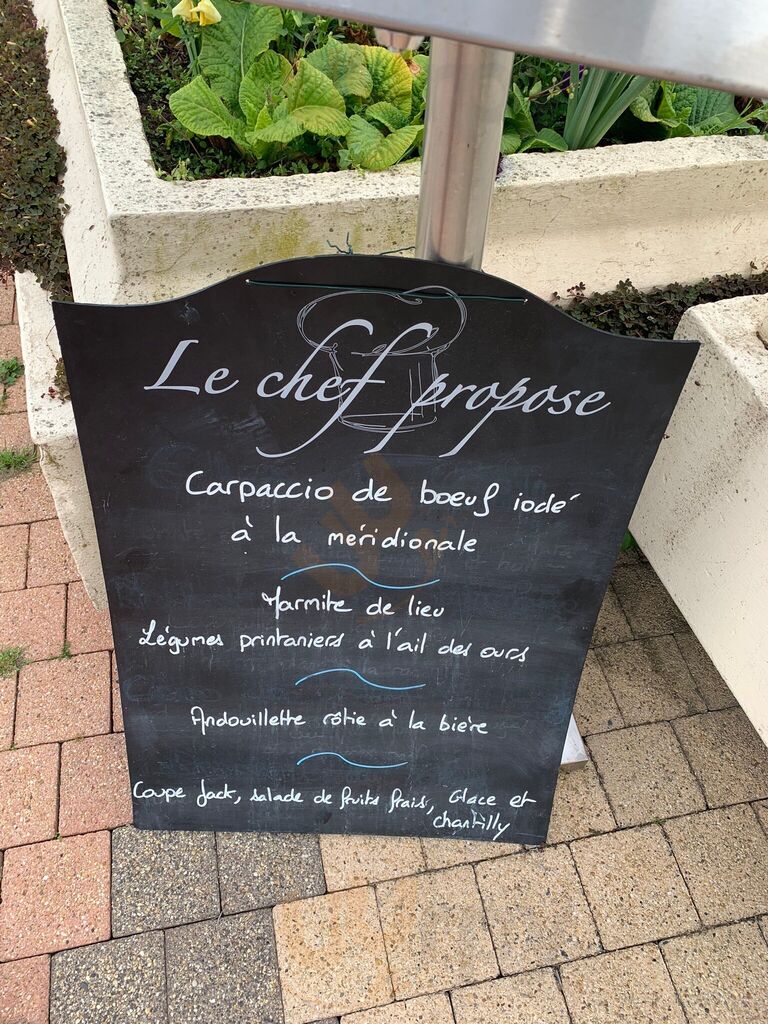 Le chef propose
Carpaccio de boeuf iodé
à la méridionale
Marmite de lieu
Légumes printaniers à l'ail des ours
Andouillette rôtie à la bière
Coupe Jack, salade de fruits frais, Glace et
chantilly